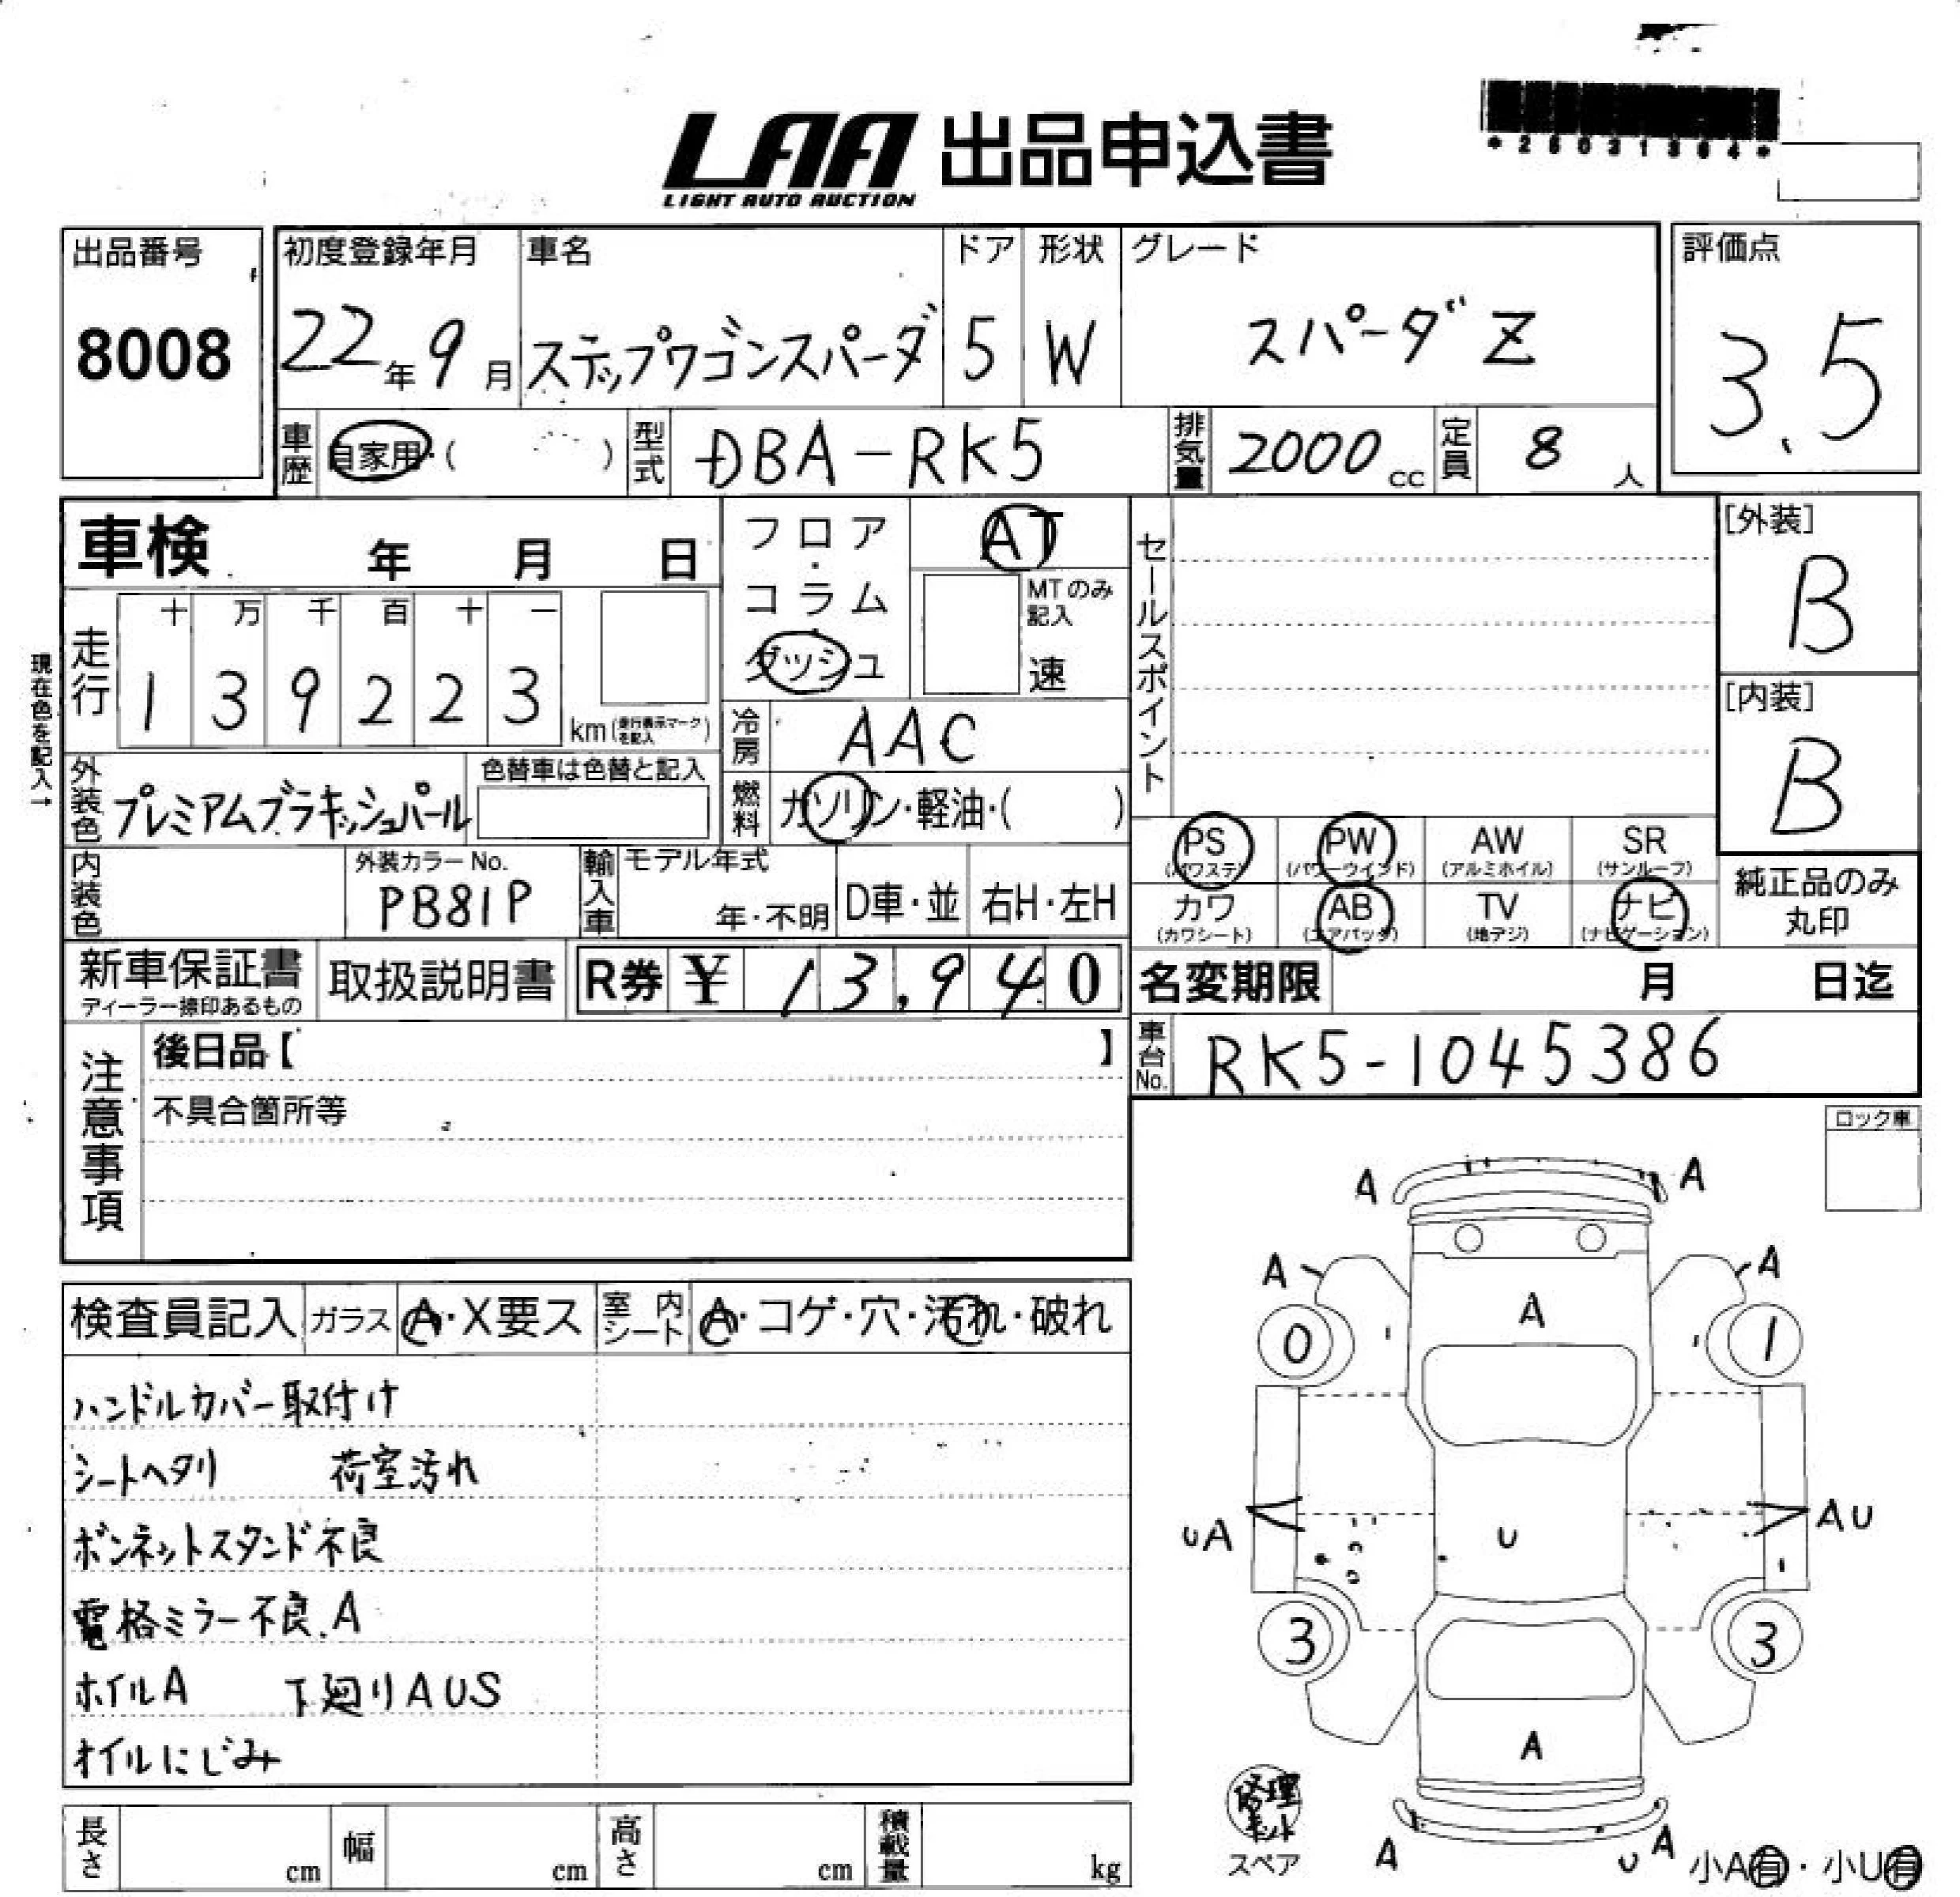 *26031364*
LAA 出品申込書
LIGHT AUTO AUCTION
出品番号
8008
初度登録年月 車名 ドア 形状 グレード
22年9月 ステップワゴンスパーダ 5 W スパーダ Z
評価点
3.5
車歴 自家用・( ) 型式 DBA-RK5 排気量 2000cc 定員 8人
車検 年 月 日
フロア・コラム・ダッシュ
AT
MTのみ記入
速
セールスポイント
[外装]
B
[内装]
B
現在色を記入→
走行 十 万 千 百 十 一
1 3 9 2 2 3
km(走行表示マークを記入)
冷房 AAC
外装色 プレミアムブラキッシュパール
色替車は色替と記入
燃料 ガソリン・軽油・( )
PS(パワステ) PW(パワーウインド) AW(アルミホイル) SR(サンルーフ)
カワ(カワシート) AB(エアバッグ) TV(地デジ) ナビ(ナビゲーション)
純正品のみ丸印
内装色 外装カラーNo. PB81P
輸入車 モデル年式 年・不明 D車・並 右H・左H
新車保証書
ディーラー捺印あるもの
取扱説明書 R券 ¥ 13,940
名変期限 月 日迄
車台No. RK5-1045386
注意事項
後日品【 】
不具合箇所等
ロック車
検査員記入 ガラス A・X要ス 室内シート A・コゲ・穴・汚れ・破れ
ハンドルカバー取付け
シートヘタリ 荷室汚れ
ボンネットスタンド不良
電格ミラー不良.A
ホイルA 下廻りAUS
オイルにじみ
A A
A A
A
0 1
UA U AU
3 3
A
修理キット
スペア
A U A
小A有・小U有
長さ cm 幅 cm 高さ cm 積載量 kg